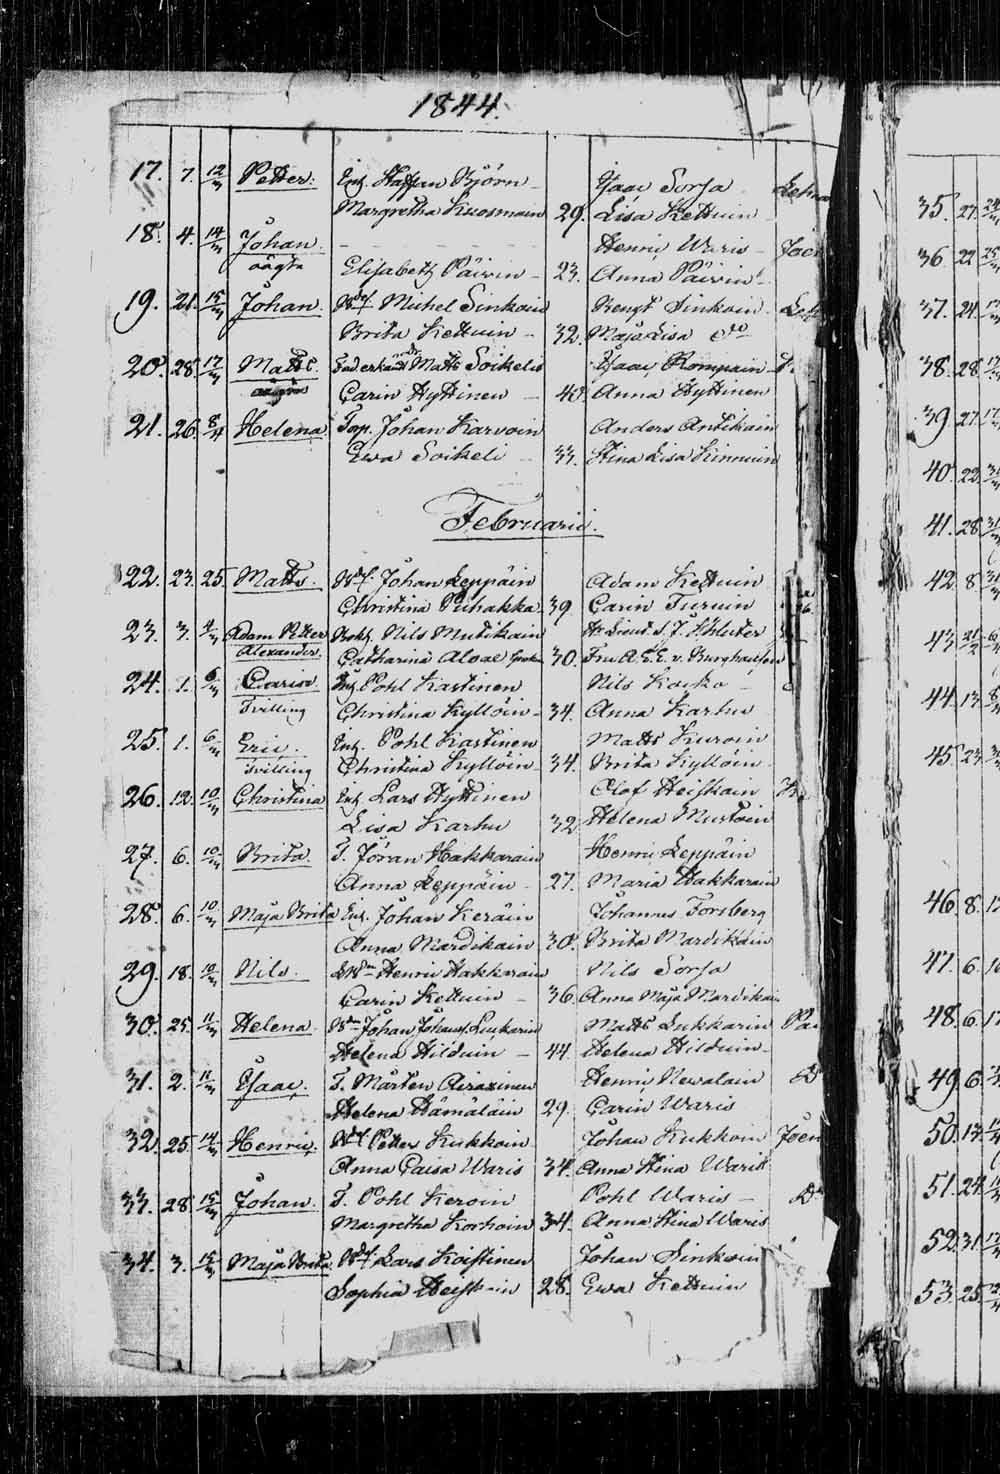 1844.
17. 7. 12/3 Petter. Enk. Staffan Björn Isaac Sorsa
Margretha Kuosmain 29. Lisa Kettuin
18. 4. 14/3 Johan. Henric Waris
oägta Elisabeth Päivin 23. Anna Päivin
19. 21. 15/3 Johan. Michel Sinkoin Bengt Sinkoin
Brita Kettuin 32. Maja Lisa do
20. 28. 17/3 Matts. Matts Soikeli Isaac Rompain
Carin Hyttinen 40. Anna Hyttinen
21. 26. 8/4 Helena Torp. Johan Karvoin Anders Antikain
Ewa Soikeli 33. Stina Lisa Kinnuin
Februarii.
22. 23. 25. Matts. Johan Leppäin Adam Kettuin
Christina Puhakka 39. Carin Turuin
23. 3. 4/3 Adam Petter Bokh. Nils Mutikain
Alexander. Catharina 30. Fru A. E. E. v. Burghausen
24. 1. 6/3 Carin. Enk. Pohl Kastinen Nils Kocko
Tvilling Christina Kyllöin 34. Anna Karhu
25. 1. 6/3 Eric. Enk. Pohl Kastinen Matts Kuroin
Tvilling Christina Kyllöin 34. Brita Kyllöin
26. 12. 10/3 Christina Enk. Lars Hyttinen Olof Heiskain
Lisa Karhu 32 Helena Mustoin
27. 6. 10/3 Brita. T. Jöran Hakkarain Henric Leppäin
Anna Leppäin 27. Maria Hakkarain
28. 6. 10/3 Maja Brita Enk. Johan Keräin Johannes Forsberg
Anna Mardikain 30. Brita Mardikain
29. 18. 10/3 Nils. Henric Hakkarain Nils Sorsa
Carin Kettuin 36. Anna Maja Mardikain
30. 25. 11/3 Helena. Johan Johanss. Lukkarin Matts Lukkarin
Helena Hilduin 44. Helena Hilduin
31. 2. 11/3 Isaac. T. Mårten Airaxinen Henric Newalain
Helena Hämäläin 29. Carin Waris
32. 25. 14/3 Henric. Petter Kukkoin Johan Kukkoin Joen
Anna Caisa Waris 34. Anna Stina Waris
33. 28. 15/3 Johan. T. Pohl Keroin Pohl Waris
Margretha Korhoin 34. Anna Stina Waris
34. 3. 15/3 Maja Brita Lars Koistinen Johan Sinkoin
Sophia Heiskain 28. Ewa Kettuin
35. 27.
36. 22
37. 24.
38. 28
39. 27.
40. 22.
41. 28
42. 8.
43.
44. 13.
45. 23
46. 8.
47. 6.
48. 6.
49. 6.
50. 13.
51. 24.
52. 31.
53. 25.